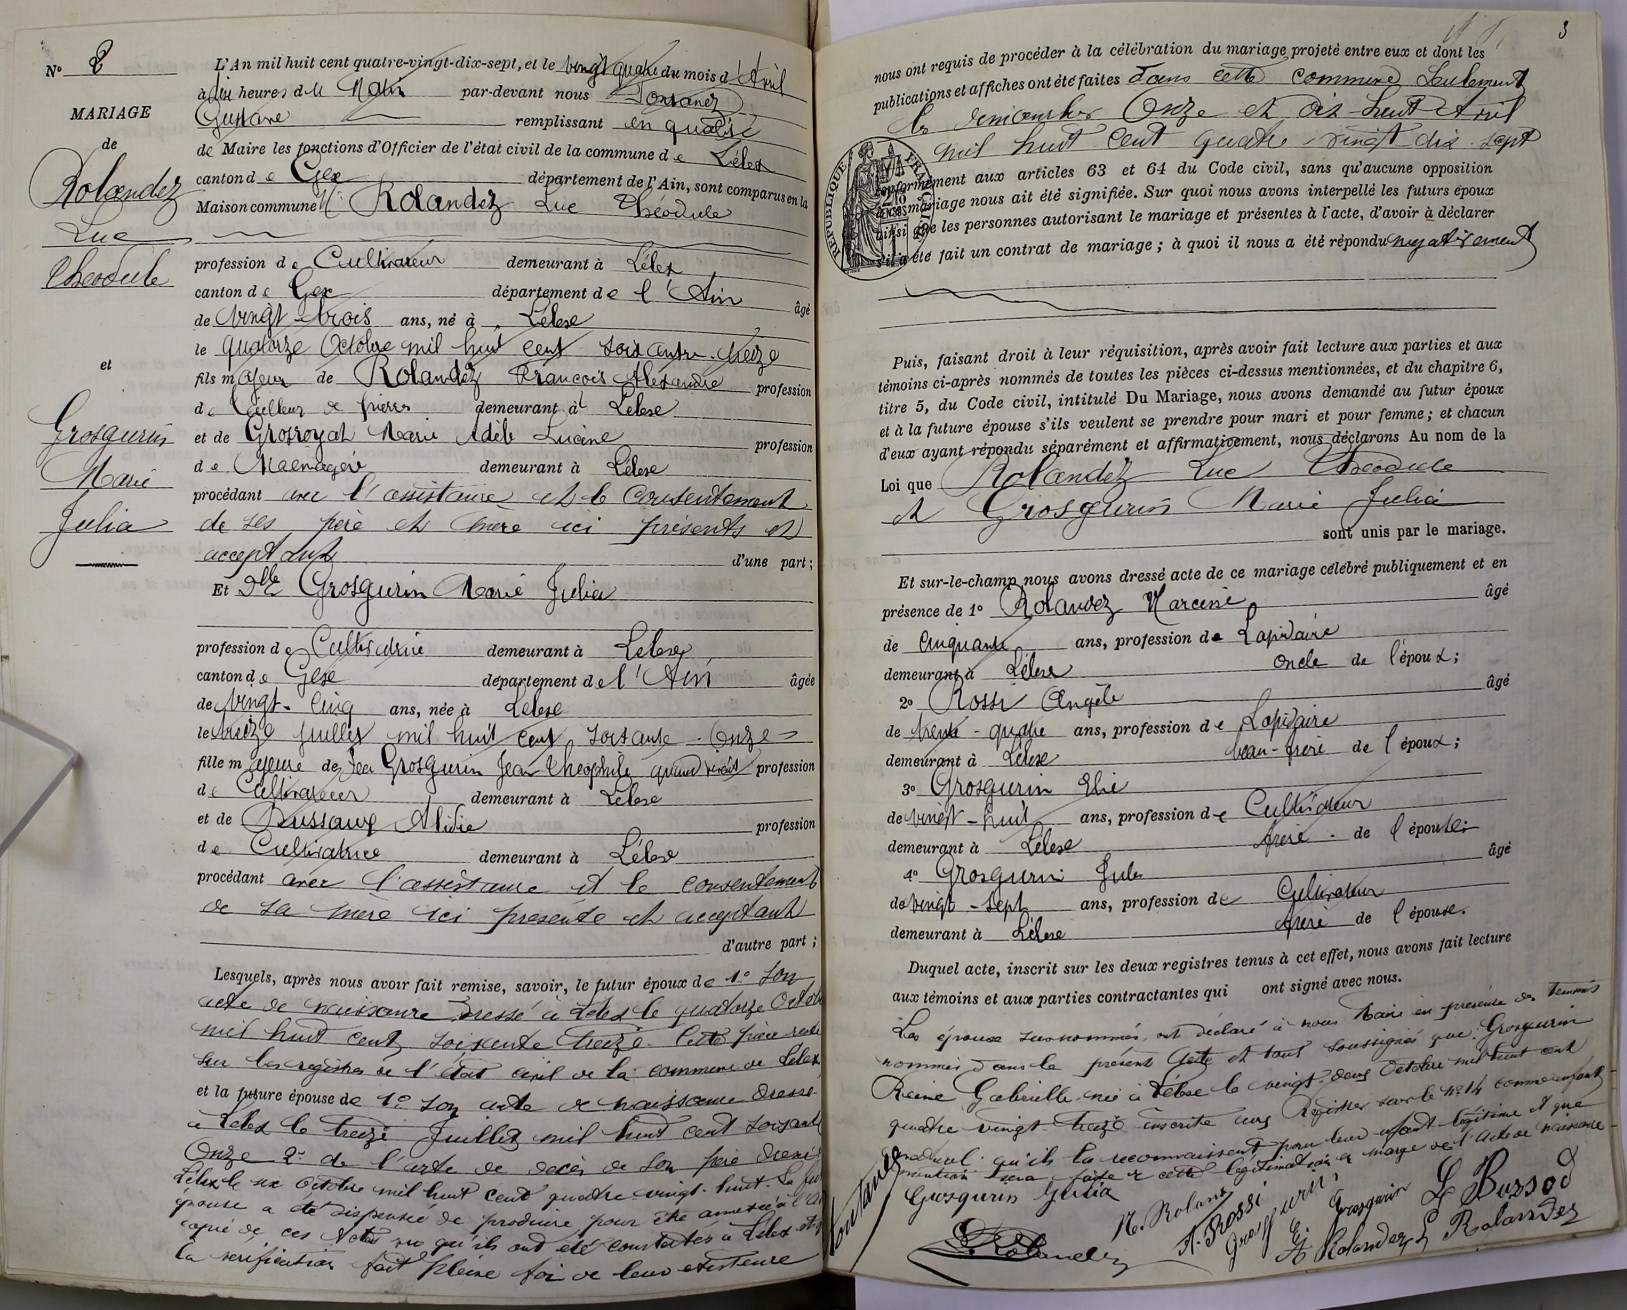 N° 2
MARIAGE
de
Rolandez
Luc
Théodule
et
Grosgurin
Marie
Julia
L'An mil huit cent quatre-vingt-dix-sept, et le vingt quatre du mois d'Avril
à dix heures du Matin par-devant nous Fontanez
Gustave remplissant en qualité
de Maire les fonctions d'Officier de l'état civil de la commune de Lélex
canton de Gex département de l'Ain, sont comparus en la
Maison commune Mr Rolandez Luc Théodule
profession de Cultivateur demeurant à Lélex
canton de Gex département de l'Ain âgé
de vingt trois ans, né à Lélex
le quatorze Octobre mil huit cent soixante-treize
fils majeur de Rolandez François Alexandre profession
de tailleur de pierres demeurant à Lélex
et de Grosroyat Marie Adèle Lucine profession
de Maenagère demeurant à Lélex
procédant avec l'assistance et le consentement
de ses père et mère ici présents et
acceptant d'une part;
Et Dlle Grosgurin Marie Julia
profession de Cultivatrice demeurant à Lélex
canton de Gex département de l'Ain âgée
de vingt-cinq ans, née à Lélex
le treize juillet mil huit cent soixante-onze
fille majeure de feu Grosgurin Jean Théophile quand vivait profession
de Cultivateur demeurant à Lélex
et de Bussauge Alidie profession
de Cultivatrice demeurant à Lélex
procédant avec l'assistance et le consentement
de sa mère ici présente et acceptant
d'autre part;
Lesquels, après nous avoir fait remise, savoir, le futur époux de 1° Son
acte de naissance dressé à Lélex le quatorze Octobre
mil huit cent soixante treize. Cette pièce
sur les registres de l'état civil de la commune de Lélex
et la future épouse de 1° Son acte de naissance dressé
à Lélex le treize Juillet mil huit cent soixante
Onze 2° de l'acte de décès de Son père
Lélex le six octobre mil huit cent quatre vingt-huit. La future
épouse a été dispensée de produire pour être annexée à l'acte
copie de ces Actes vu qu'ils ont été constatés à Lélex et
la vérification fait pleine foi de leur existence
3
nous ont requis de procéder à la célébration du mariage projeté entre eux et dont les
publications et affiches ont été faites Dans cette commune Seulement
les dimanches Onze et dix-huit Avril
mil huit cent quatre vingt dix-sept
RÉPUBLIQUE FRANÇAISE
conformément aux articles 63 et 64 du Code civil, sans qu'aucune opposition
au mariage nous ait été signifiée. Sur quoi nous avons interpellé les futurs époux
ainsi que les personnes autorisant le mariage et présentes à l'acte, d'avoir à déclarer
s'il a été fait un contrat de mariage; à quoi il nous a été répondu négativement
Puis, faisant droit à leur réquisition, après avoir fait lecture aux parties et aux
témoins ci-après nommés de toutes les pièces ci-dessus mentionnées, et du chapitre 6,
titre 5, du Code civil, intitulé Du Mariage, nous avons demandé au futur époux
et à la future épouse s'ils veulent se prendre pour mari et pour femme; et chacun
d'eux ayant répondu séparément et affirmativement, nous déclarons Au nom de la
Loi que Rolandez Luc Théodule
et Grosgurin Marie Julia
sont unis par le mariage.
Et sur-le-champ nous avons dressé acte de ce mariage célébré publiquement et en
présence de 1° Rolandez Narcisse âgé
de cinquante ans, profession de Lapidaire
demeurant à Lélex oncle de l'époux;
2° Rossi Angèle âgé
de trente-quatre ans, profession de Lapidaire
demeurant à Lélex beau-frère de l'époux;
3° Grosgurin Elie
de vingt-huit ans, profession de Cultivateur
demeurant à Lélex frère de l'épouse;
4° Grosgurin Jules âgé
de vingt-sept ans, profession de Cultivateur
demeurant à Lélex frère de l'épouse.
Duquel acte, inscrit sur les deux registres tenus à cet effet, nous avons fait lecture
aux témoins et aux parties contractantes qui ont signé avec nous.
Les époux susnommés ont déclaré à nous Maire en présence des témoins
nommés dans le présent Acte et tous soussignés que Grosgurin
Reine Gabrielle née à Lélex le vingt-deux Octobre mil huit cent
quatre vingt treize inscrite aux Registres sous le n° 14 comme enfant
naturel qu'ils la reconnaissent pour leur enfant légitime et que
mention sera faite de cette légitimation en marge de l'acte de naissance
Grosgurin Julia
N. Rolandez
A. Rossi
Grosgurin
E. Grosgurin
L. Bussod
L. Rolandez
A. Rolandez
L. Rolandez
Fontanez